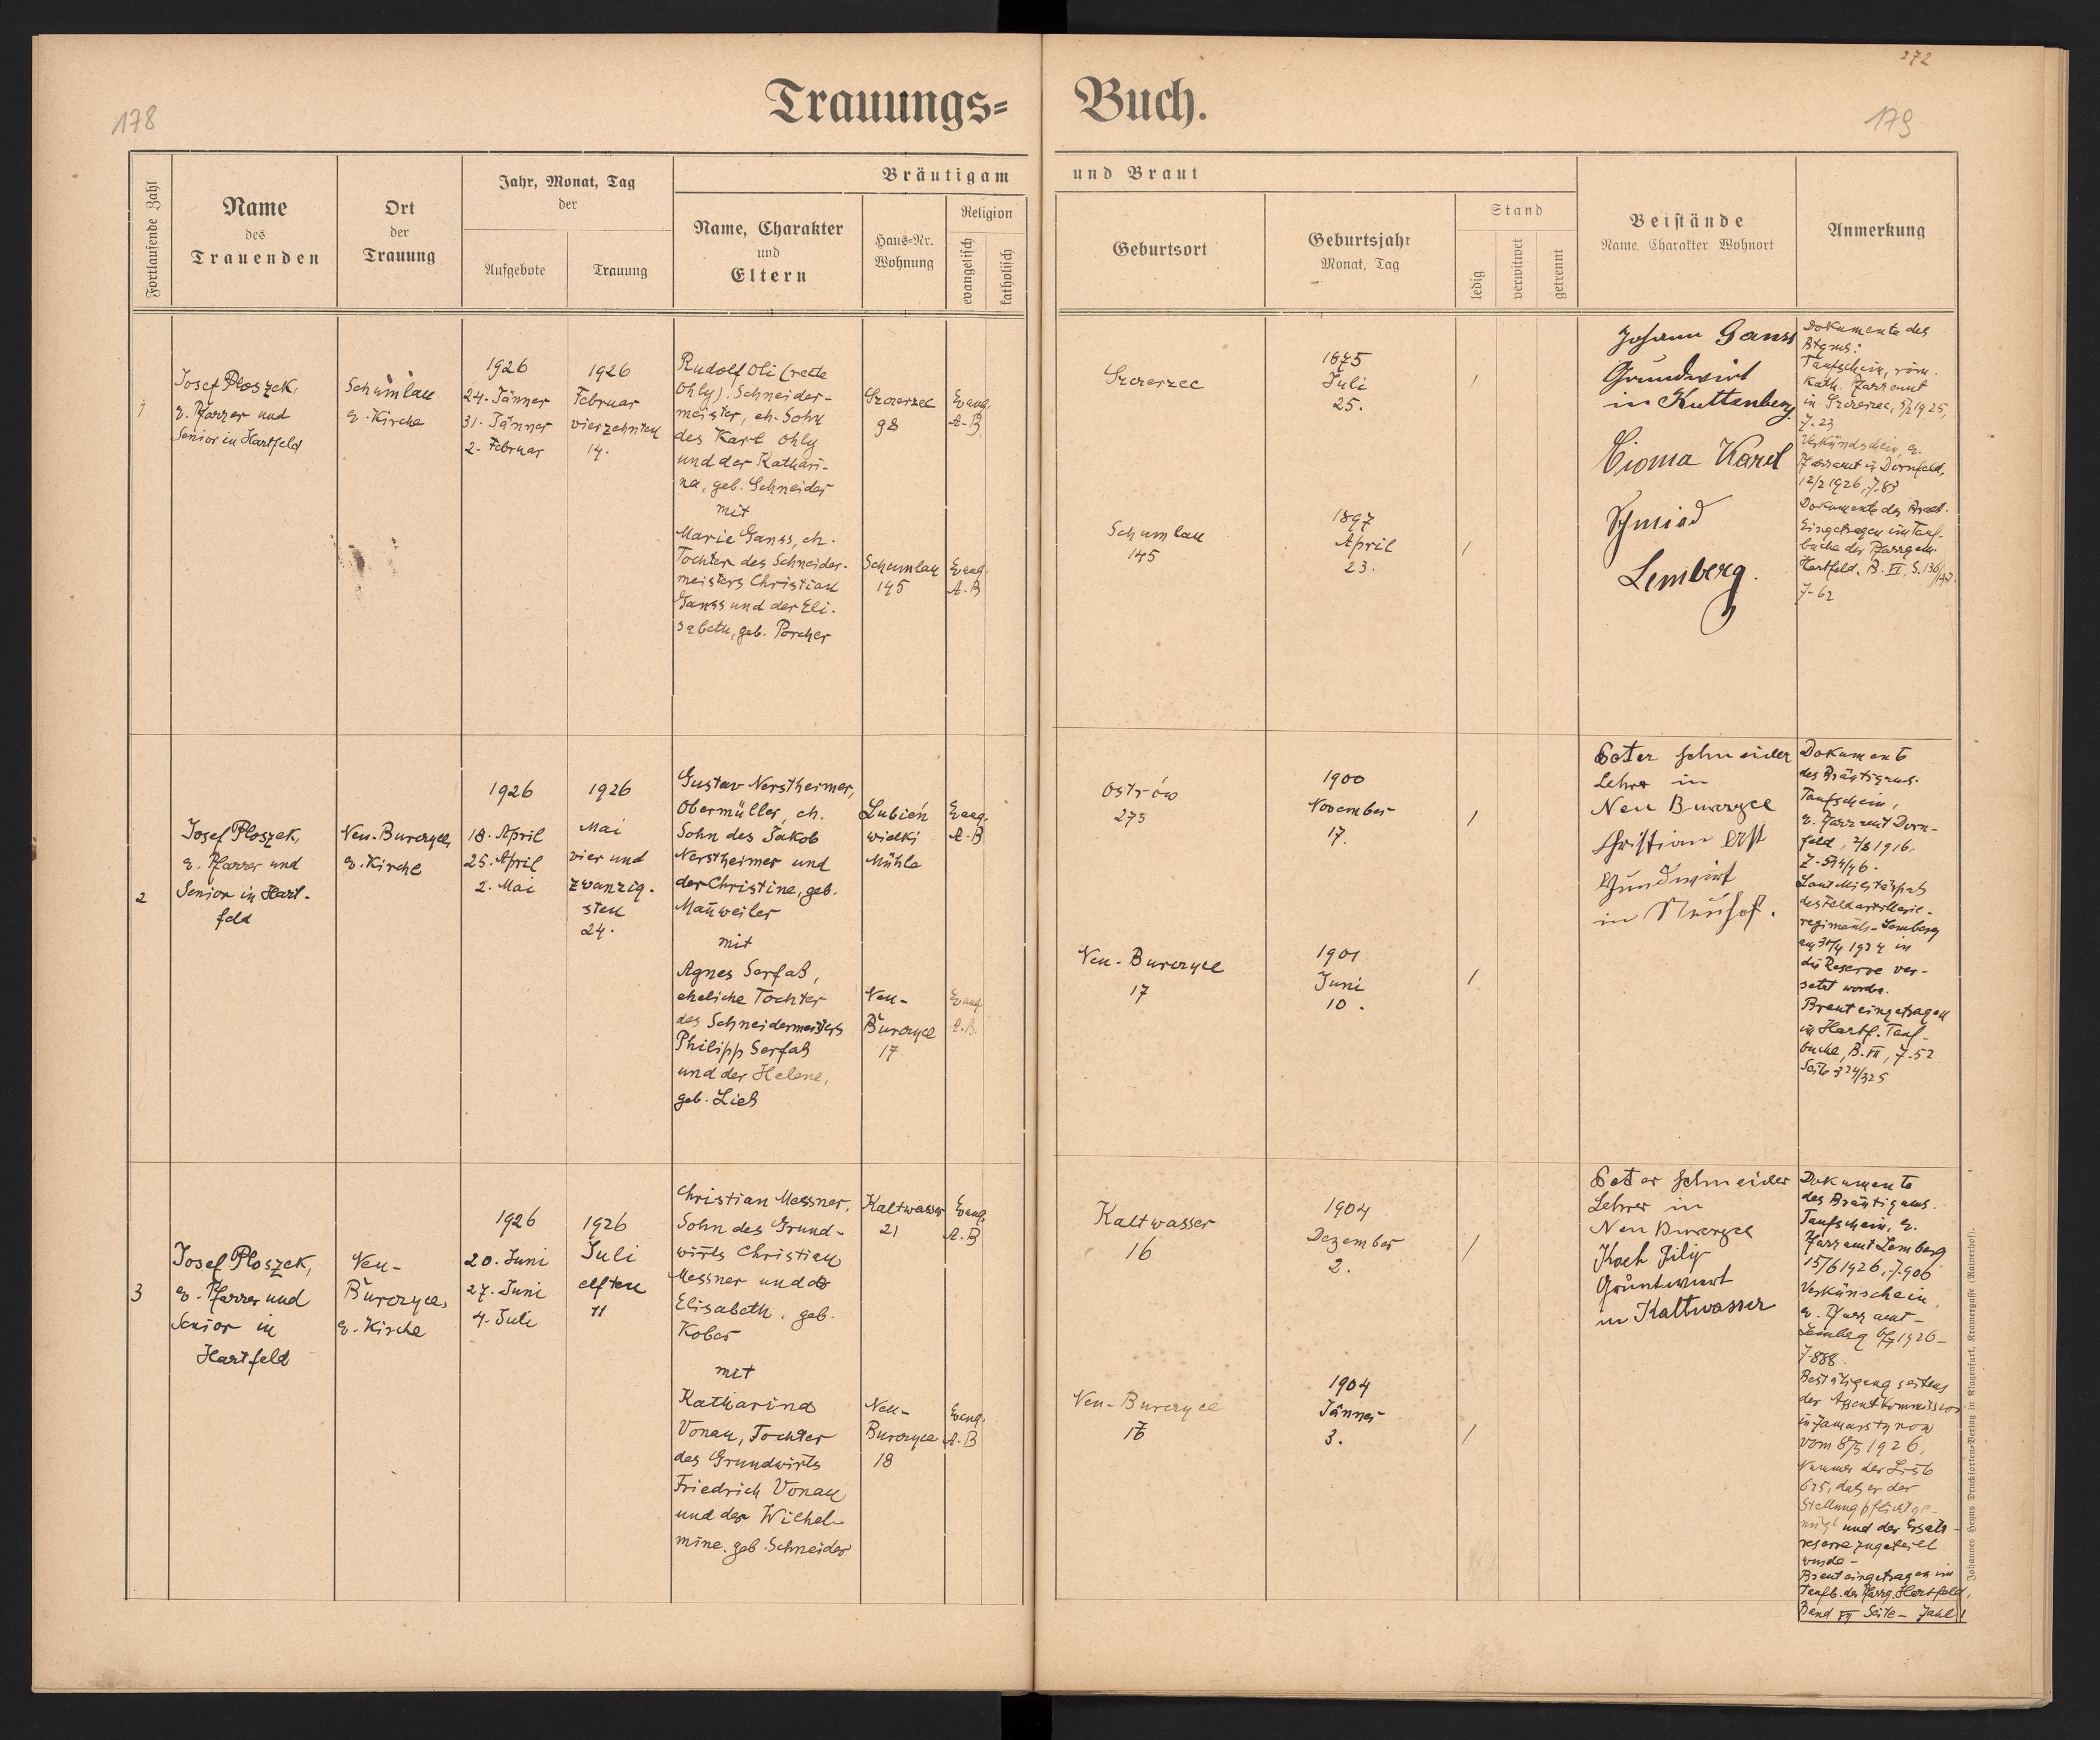 272
178
179
Trauungs= Buch.
Fortlaufende Zahl
Name
des
Trauenden
Ort
der
Trauung
Jahr, Monat, Tag
der
Aufgebote
Trauung
Bräutigam und Braut
Name, Charakter
und
Eltern
Haus=Nr.
Wohnung
Religion
evangelisch
katholisch
Geburtsort
Geburtsjahr
Monat, Tag
Stand
ledig
verwitwet
getrennt
Beistände
Name, Charakter Wohnort
Anmerkung
1
Josef Ploszek,
e. Pfarrer und
Senior in Hartfeld
Schumlau
e. Kirche
1926
24. Jänner
31. Jänner
2. Februar
1926
Februar
vierzehnten
14.
Rudolf Oli (recte
Ohly), Schneider-
meister, eh. Sohn
des Karl Ohly
und der Kathari-
na, geb. Schneider
mit
Marie Ganss, eh.
Tochter des Schneider-
meisters Christian
Ganss und der Eli-
sabeth, geb. Porcher
Szczerzec
98
Evang.
A.B
Schumlau
145
Evang.
A.B
Szczerzec
Schumlau
145
1875
Juli
25.
1897
April
23.
/
/
Johann Ganss
Grundwirt
in Kuttenberg
Cioma Karol
Schmied
Lemberg.
Dokumente des
Btgms:
Taufschein, röm.
kath. Pfarramt
in Szczerzec, 1925,
Z. 23
Verkündschein, e.
Pfarramt in Dornfeld,
12/2 1926, Z. 83
Dokumente der Braut.
Eingetragen im Tauf-
buche der Pfarrgem.
Hartfeld, B. VI, S. 136/137.
Z. 62
2
Josef Ploszek,
e. Pfarrer und
Senior in Hart-
feld
Neu-Burczyce,
e. Kirche
1926
18. April
25. April
2. Mai
1926
Mai
vier und
zwanzig-
sten
24.
Gustav Nerstheimer,
Obermüller, eh.
Sohn des Jakob
Nerstheimer und
der Christine, geb.
Mañweiler
mit
Agnes Serfaß,
eheliche Tochter
des Schneidermeisters
Philipp Serfaß
und der Helene,
geb. Ließ
Lubień
wielki
Mühle
Evang.
A.B
Neu-
Burczyce
17
Evang.
A.B.
Ostrów
275
Neu-Burczyce
17
1900
November
17.
1901
Juni
10.
/
/
Peter Schneider
Lehrer in
Neu Burczyce
Christian Erst
Grundwirt
in Neuhof.
Dokumente
des Bräutigams.
Taufschein,
e. Pfarramt Dorn-
feld, 7/8 1916,
Laut Militärpaß
des Feldartillerie-
regiments-Lemberg
am 1924 in
die Reserve ver-
setzt worden.
Braut eingetragen
im Hartf. Tauf-
buche, B. VI, Z. 52
Seite 324/325
3
Josef Ploszek,
e. Pfarrer und
Senior in
Hartfeld
Neu-
Burczyce,
e. Kirche
1926
20. Juni
27. Juni
4. Juli
1926
Juli
elften
11
Christian Messner,
Sohn des Grund-
wirts Christian
Messner und d
Elisabeth, geb.
Kober
mit
Katharina
Vonau, Tochter
des Grundwirts
Friedrich Vonau
und der Wilhel-
mine, geb. Schneider
Kaltwasser
21
Evang.
A.B
Neu-
Burczyce
18
Evang.
A.B
Kaltwasser
16
Neu-Burczyce
1904
Dezember
2.
1904
Jänner
3.
/
/
Peter Schneider
Lehrer in
Neu Burczyce
Koch Filip
Gruntwirt
in Kaltwasser
Dokumente
des Bräutigams.
Taufschein, e.
Pfarramt Lemberg
15/6 1926, Z. 906
Verkünschein,
e. Pfarramt-
Lemberg 1926-
Z. 888.
Bestätigung seitens
der Assentkommission
in Zamarstynow
vom 8/5 1926,
Nummer der Liste
625, daß er der
Stellungpflicht ge-
nügt und der Ersatz-
reserve zugeteilt
wurde-
Braut eingetragen im
Taufb. der Pfarrg. Hartfeld,
Band VI Seite - Zahl 1
Johannes Heyns Drucksorten-Verlag in Klagenfurt, Kramergasse (Rainerhof).